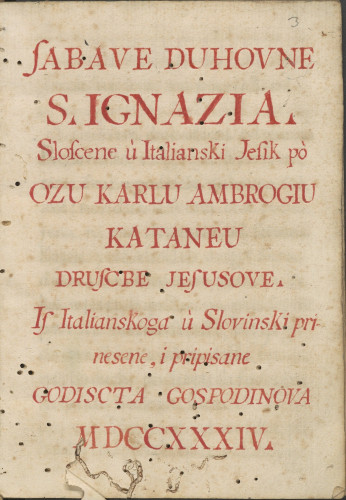 3
ſABAVE DUHOVNE
S. IGNAZIA.
Sloſcene ù Italianski Jeſik pò
OZU KARLU AMBROGIU
KATANEU
DRUſCBE JEſUSOVE.
Iſ Italianskoga ù Slovinski pri-
nesene, i pripisane
GODISCTA GOSPODINOVA
MDCCXXXIV.